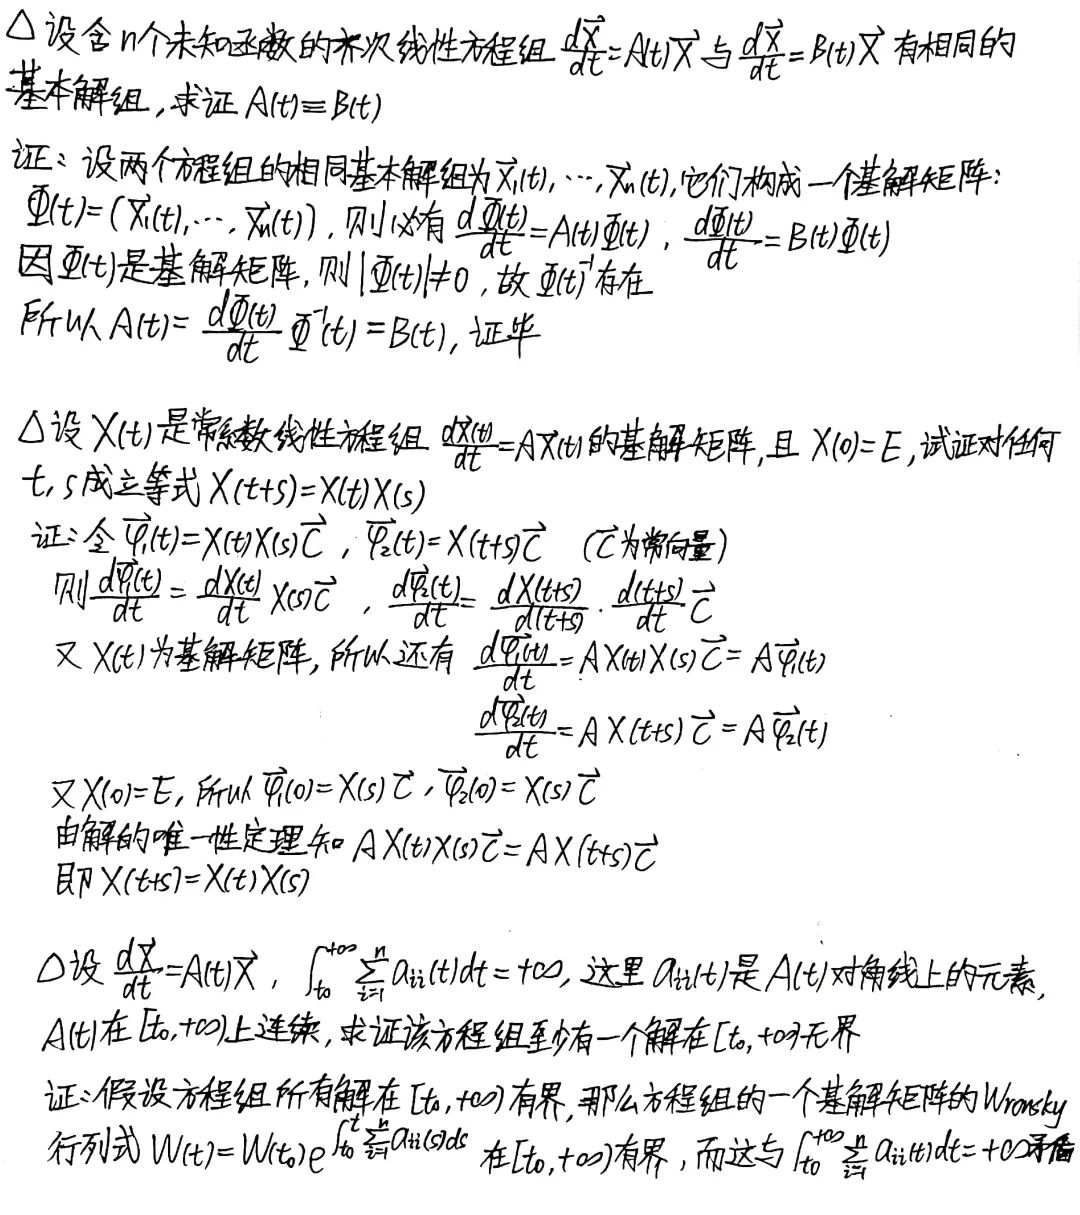 △设含n个未知函数的齐次线性方程组 dX⃗/dt=A(t)X⃗ 与 dX⃗/dt=B(t)X⃗ 有相同的
基本解组,求证 A(t)≡B(t)
证:设两个方程组的相同基本解组为X⃗₁(t),⋯,X⃗n(t),它们构成一个基解矩阵:
Φ(t)=(X⃗₁(t),⋯,X⃗n(t)),则必有 dΦ(t)/dt=A(t)Φ(t),dΦ(t)/dt=B(t)Φ(t)
因Φ(t)是基解矩阵,则|Φ(t)|≠0,故Φ(t)⁻¹存在
所以A(t)= dΦ(t)/dt Φ⁻¹(t)=B(t),证毕
△设X(t)是常系数线性方程组 dX⃗(t)/dt=AX⃗(t)的基解矩阵,且 X(0)=E,试证对任何
t,s成立等式X(t+s)=X(t)X(s)
证:令φ⃗₁(t)=X(t)X(s)C⃗,φ⃗₂(t)=X(t+s)C⃗ (C⃗为常向量)
则 dφ⃗₁(t)/dt = dX(t)/dt X(s)C⃗,dφ⃗₂(t)/dt= dX(t+s)/d(t+s) · d(t+s)/dt C⃗
又X(t)为基解矩阵,所以还有 dφ⃗₁(t)/dt=AX(t)X(s)C⃗=Aφ⃗₁(t)
dφ⃗₂(t)/dt=AX(t+s)C⃗=Aφ⃗₂(t)
又X(0)=E,所以φ⃗₁(0)=X(s)C⃗,φ⃗₂(0)=X(s)C⃗
由解的唯一性定理知 AX(t)X(s)C⃗=AX(t+s)C⃗
即X(t+s)=X(t)X(s)
△设 dX⃗/dt=A(t)X⃗,∫_{t₀}^{+∞} ∑_{i=1}^{n} aᵢᵢ(t)dt=+∞,这里aᵢᵢ(t)是A(t)对角线上的元素,
A(t)在[t₀,+∞)上连续,求证该方程组至少有一个解在[t₀,+∞)无界
证:假设方程组所有解在[t₀,+∞)有界,那么方程组的一个基解矩阵的Wronsky
行列式W(t)=W(t₀)e^{∫_{t₀}^{t} ∑_{i=1}^{n} aᵢᵢ(s)ds} 在[t₀,+∞)有界,而这与∫_{t₀}^{+∞} ∑_{i=1}^{n} aᵢᵢ(t)dt=+∞矛盾